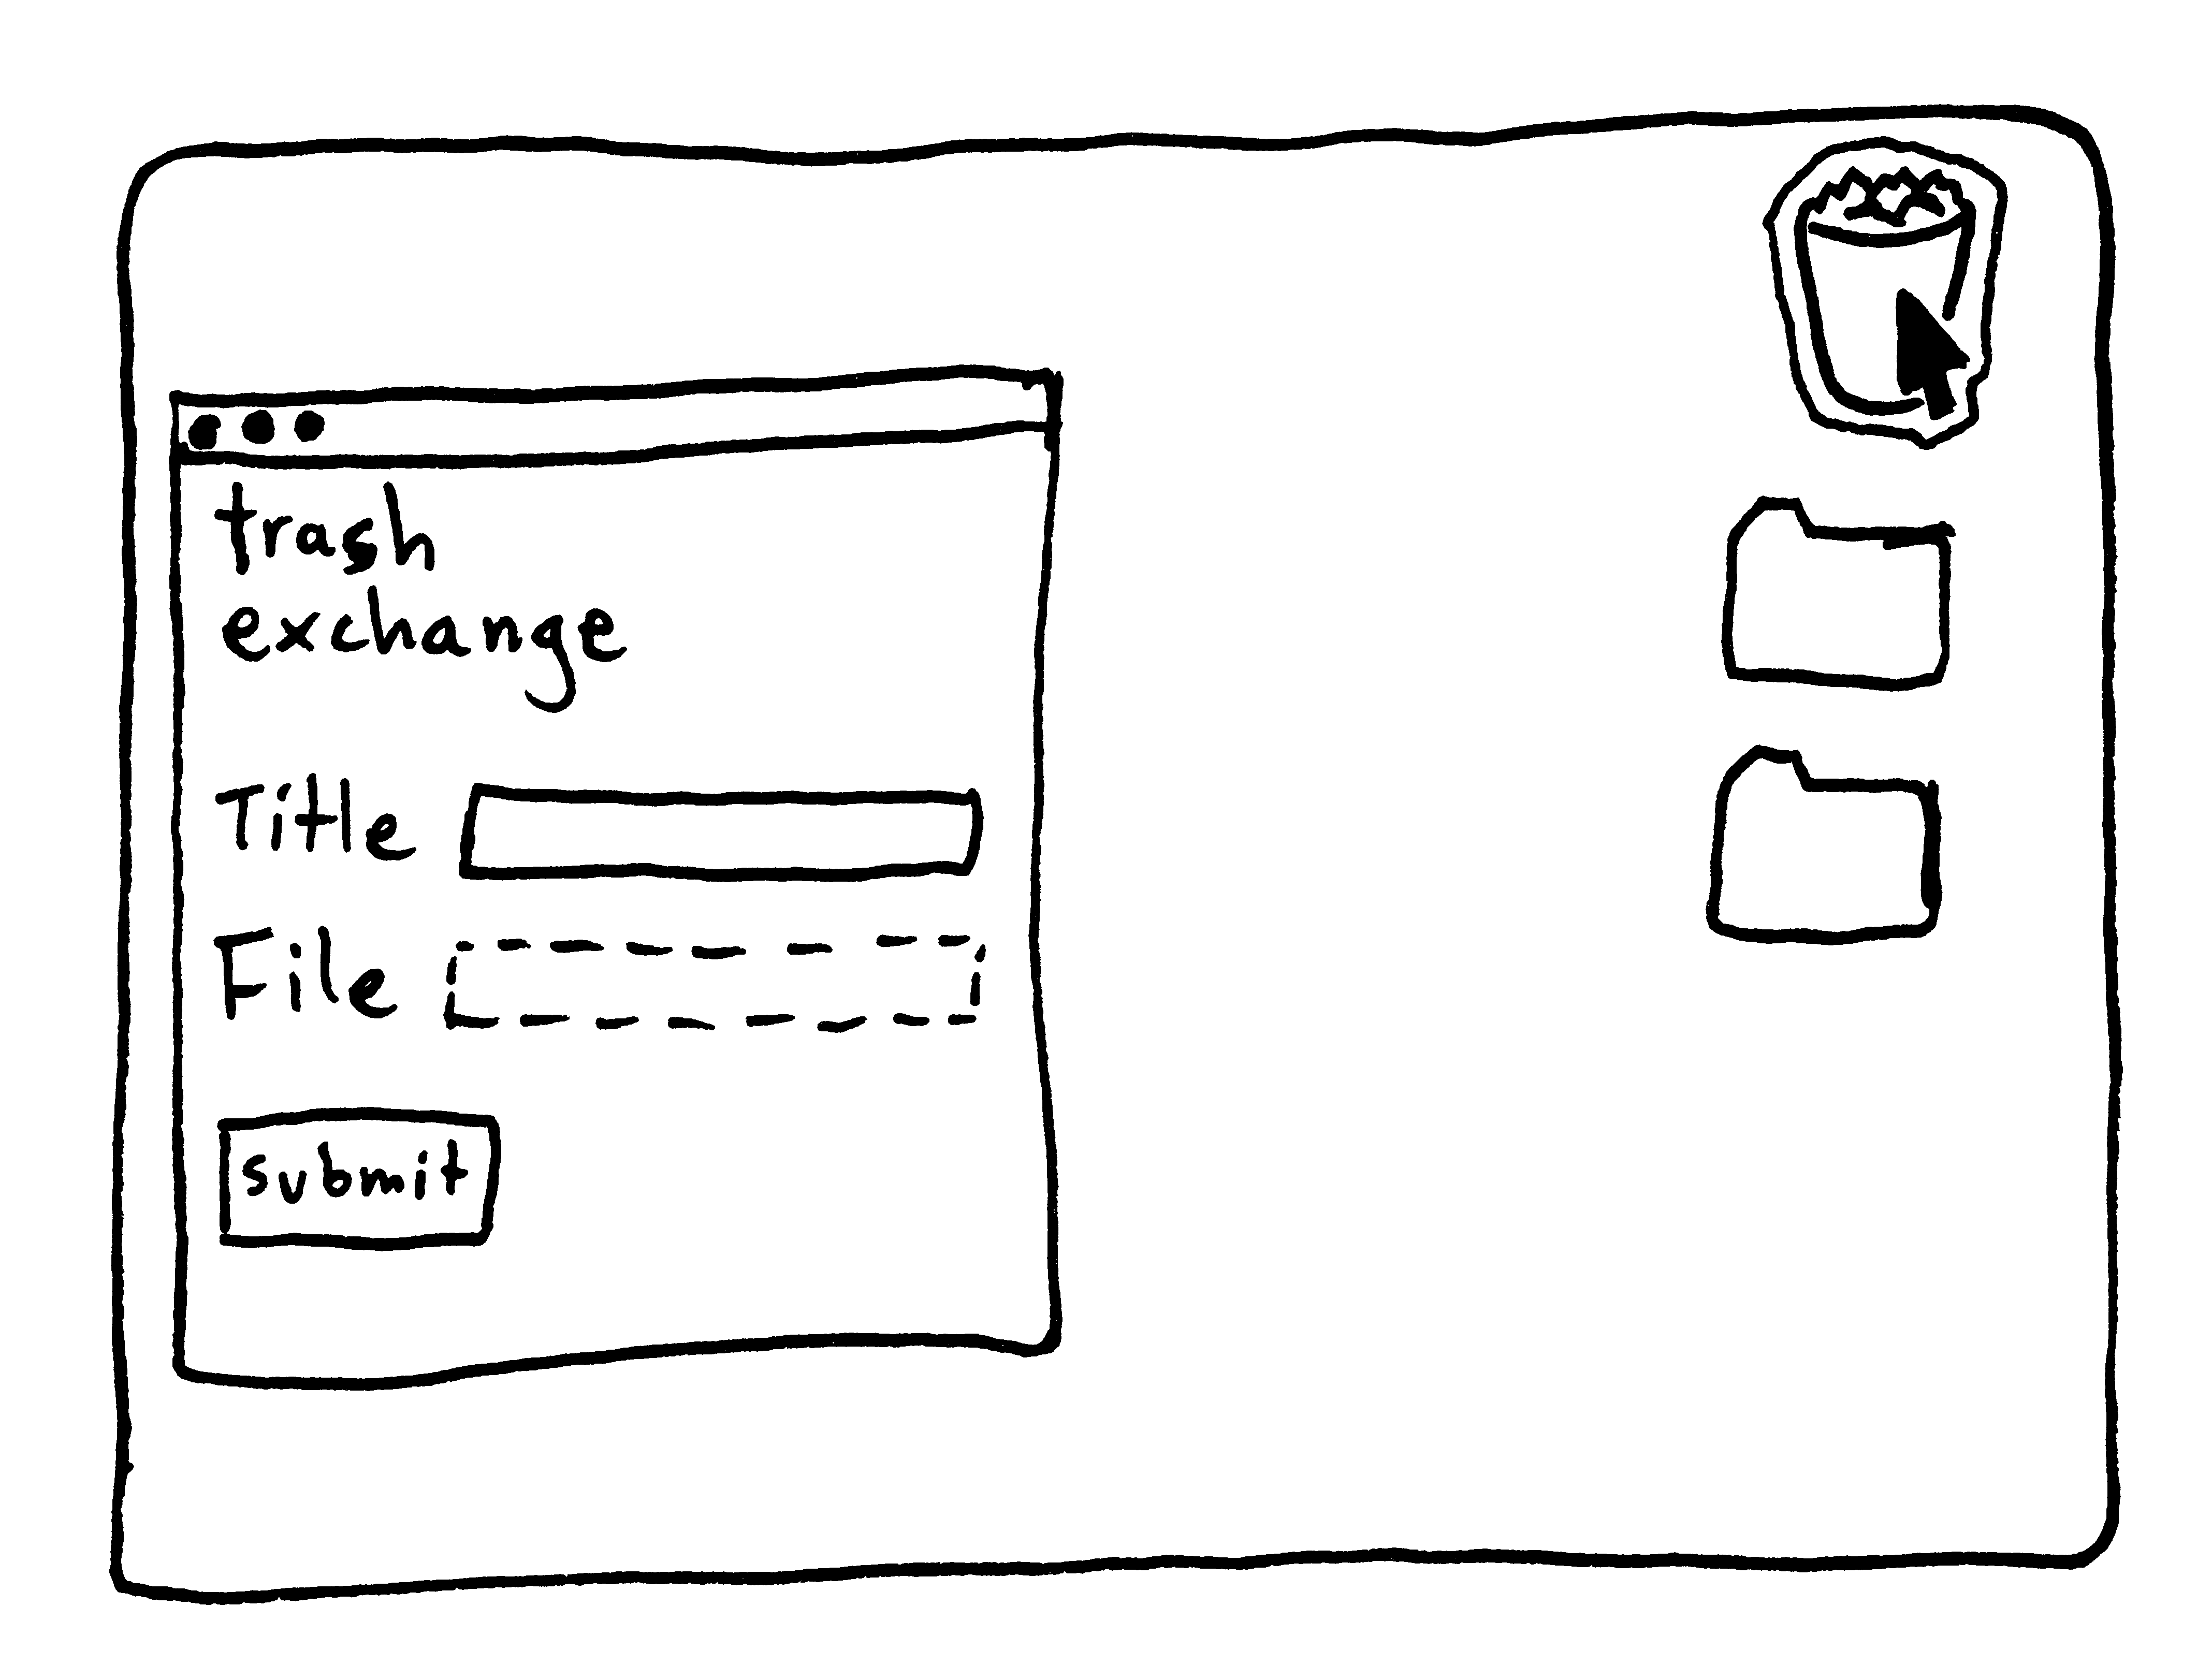 trash
exchange
Title
File
submit